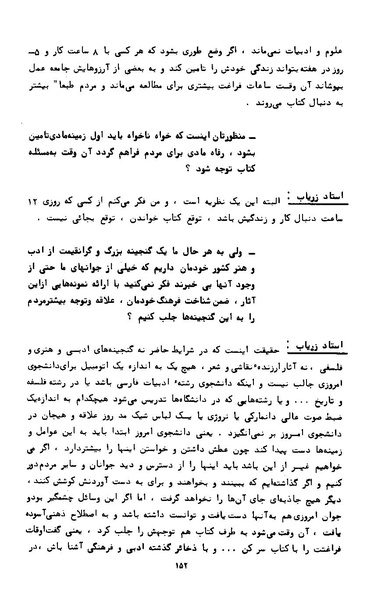 علوم و ادبیات نمی‌ماند ، اگر وضع طوری بشود که هر کسی با ۸ ساعت کار و ۵ــ
روز در هفته بتواند زندگی خودش را تامین کند و به بعضی از آرزوهایش جامه عمل
بپوشاند آن وقت ساعات فراغت بیشتری برای مطالعه می‌ماند و مردم طبعا" بیشتر
به دنبال کتاب می‌روند .
ــ منظورتان اینست که خواه ناخواه باید اول زمینه‌مادی‌تامین
بشود ، رفاه مادی برای مردم فراهم گردد آن وقت به‌مسئله
کتاب توجه شود ؟
استاد زریاب : البته این یک نظریه است ، و من فکر می‌کنم از کسی که روزی ۱۲
ساعت دنبال کار و زندگیش باشد ، توقع کتاب خواندن ، توقع بجائی نیست .
ــ ولی به هر حال ما یک گنجینه بزرگ و گرانقیمت از ادب
و هنر کشور خودمان داریم که خیلی از جوانهای ما حتی از
وجود آنها بی خبرند فکر نمی‌کنید با ارائه نمونه‌هایی ازاین
آثار ، ضمن شناخت فرهنگ‌خودمان ، علاقه وتوجه بیشترمردم
را به این گنجینه‌ها جلب کنیم ؟
استاد زریاب : حقیقت اینست که در شرایط حاضر نه گنجینه‌های ادبی و هنری و
فلسفی ، نه آثار ارزنده‌ٔ نقاشی و شعر ، هیچ یک به اندازه یک اتومبیل برای‌دانشجوی
امروزی جالب نیست و اینکه دانشجوی رشته‌ٔ ادبیات فارسی باشد یا در رشته فلسفه
و تاریخ ... و یا رشته‌هایی که در دانشگاه‌ها تدریس می‌شود هیچکدام به اندازه‌یک
ضبط صوت عالی دانمارکی یا نروژی یا یک لباس شیک مد روز علاقه و هیجان در
دانشجوی امروز بر نمی‌انگیزد . یعنی دانشجوی امروز ابتدا باید به این عوامل و
زمینه‌ها دست پیدا کند چون عطش داشتن و خواستن اینها را بیشتردارد ، اگر می
خواهیم غیر از این باشد باید اینها را از دسترس و دید جوانان و سایر مردم‌دور
کنیم و اگر گذاشته‌ایم که ببینند و بخواهند و برای به دست آوردنش کوشش کنند ،
دیگر هیچ جاذبه‌ای جای آن‌ها را نخواهد گرفت ، اما اگر این وسائل چشمگیر بودو
جوان امروزی هم به‌آنها دست یافت و توانست داشته باشد و به اصطلاح ذهنی‌آسوده
یافت ، آن وقت می‌شود به طرف کتاب هم توجهش را جلب کرد ، یعنی گفت‌اوقات
فراغتت را با کتاب سر کن ... و با ذخائر گذشته ادبی و فرهنگی آشنا باش ،در
۱۵۲